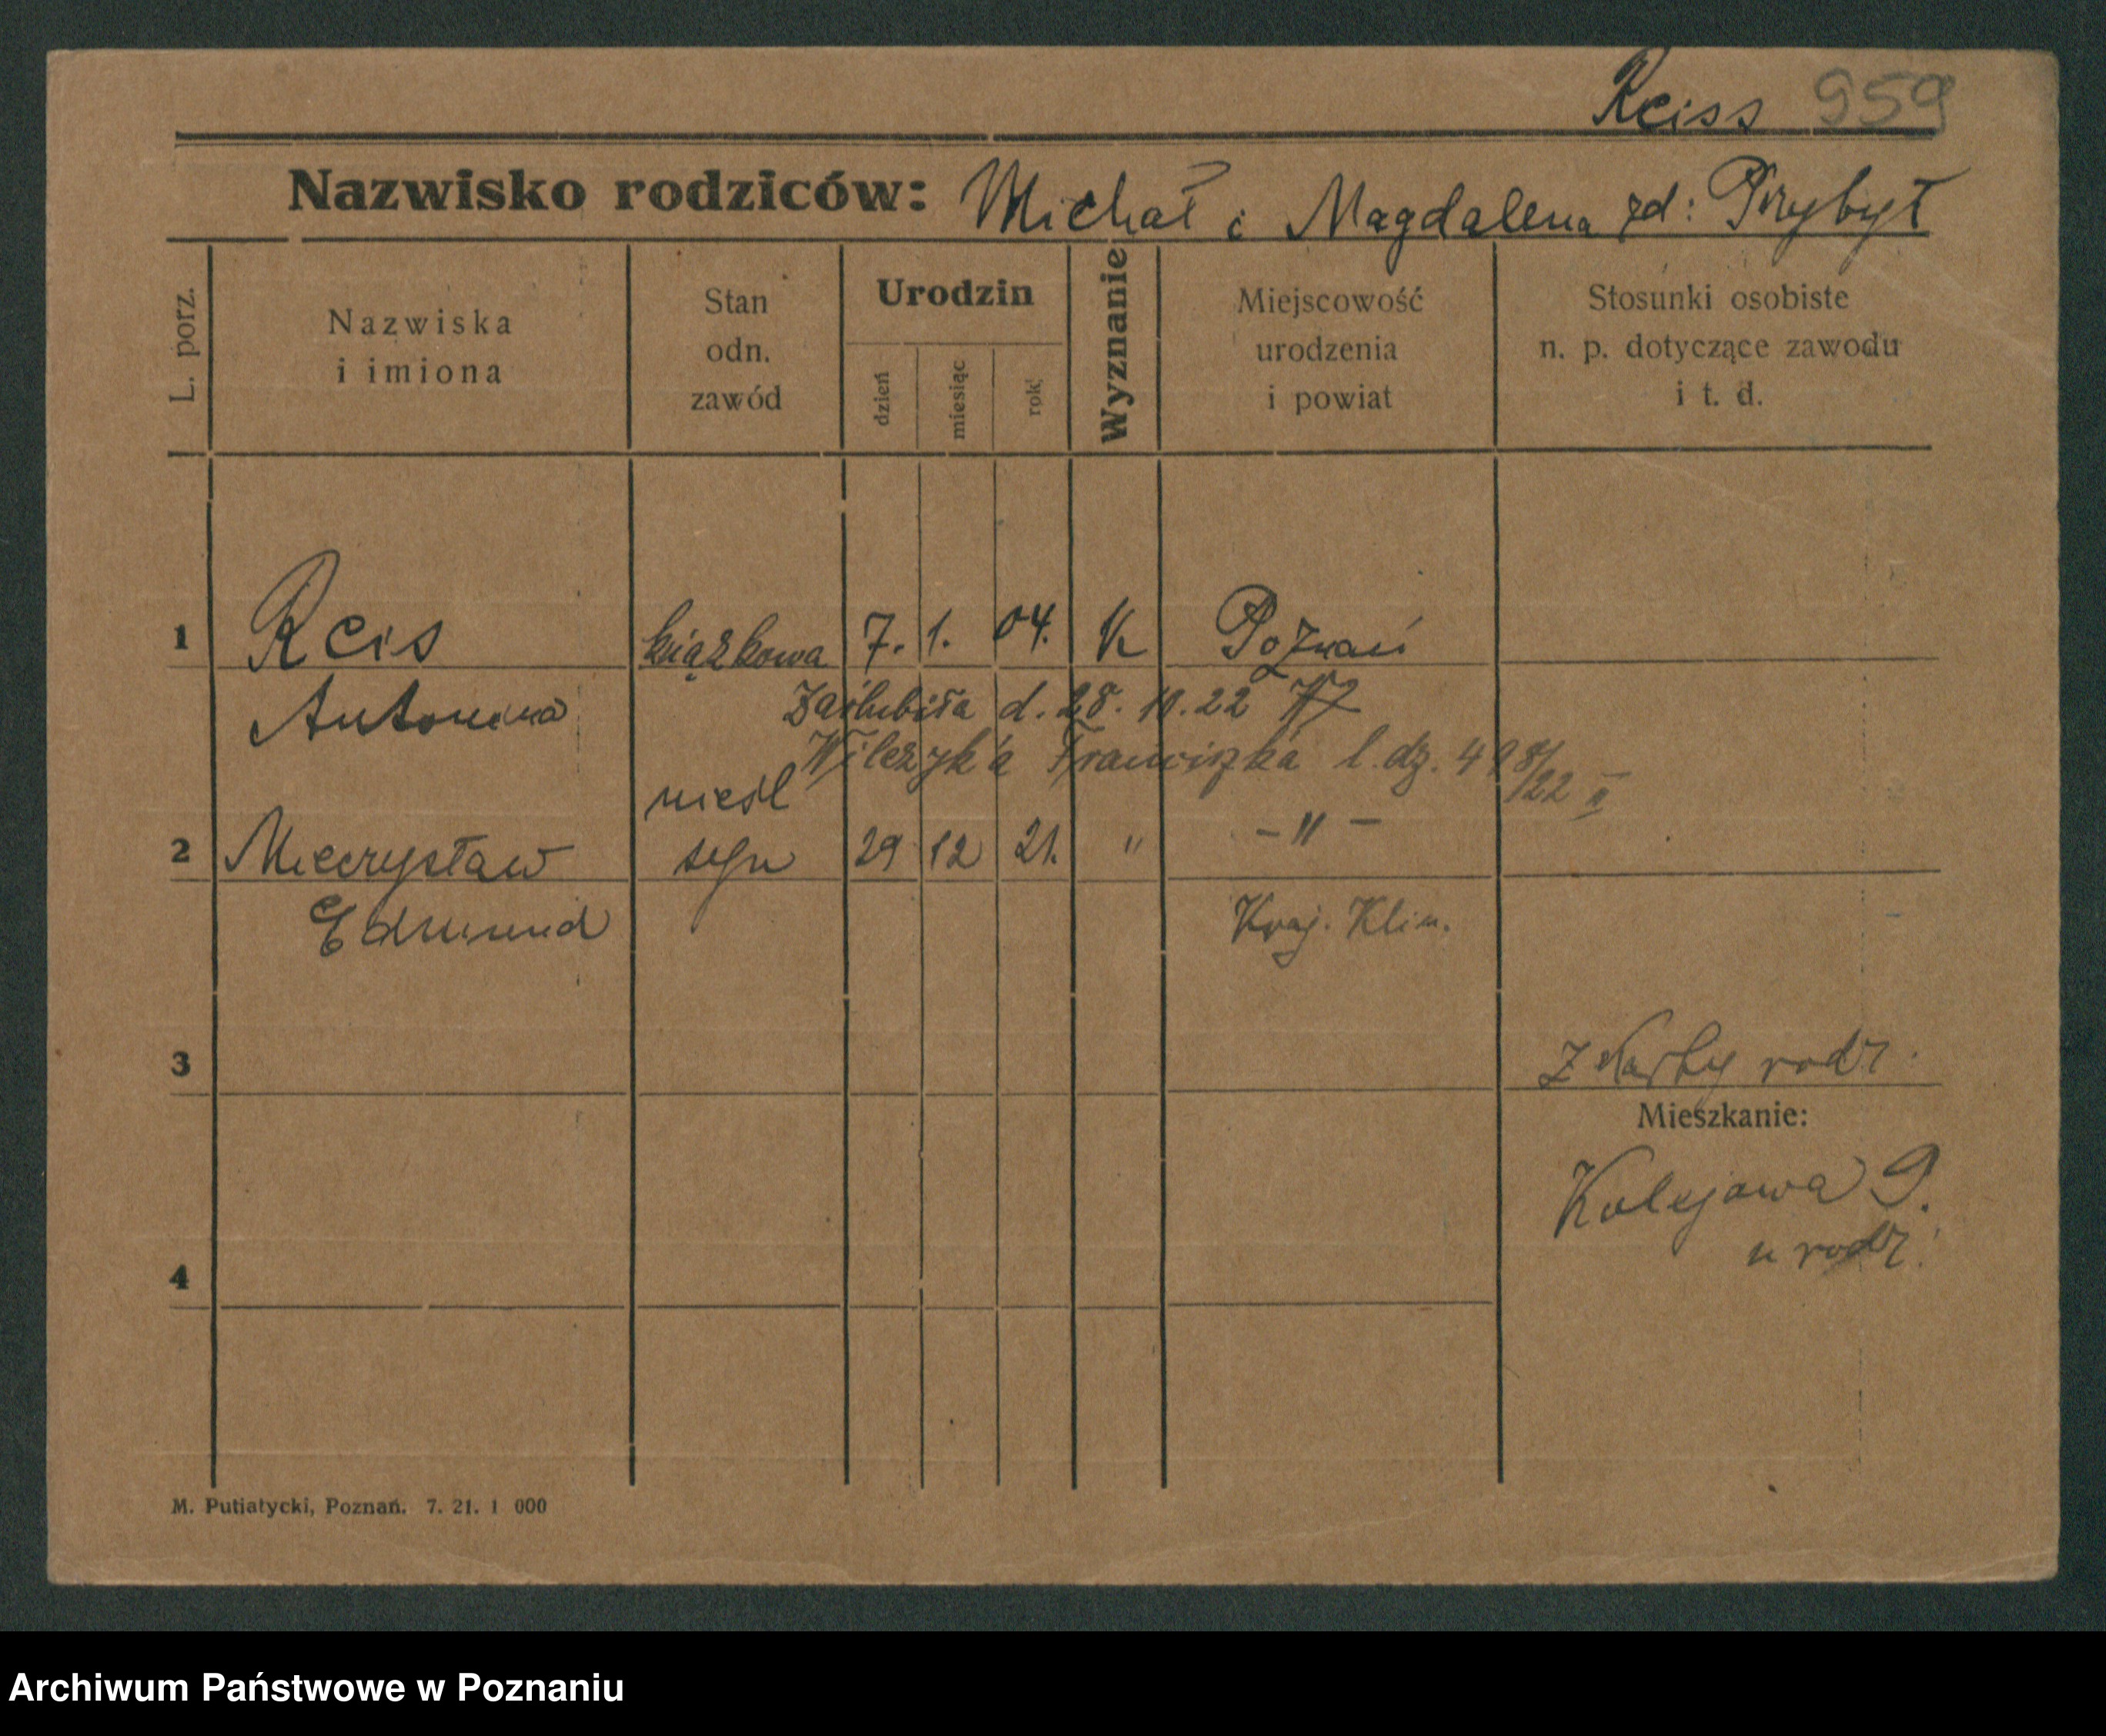 Reiss 959
Nazwisko rodziców: Michał i Magdalena zd: Przybył
L. porz.
Nazwiska
i imiona
Stan
odn.
zawód
Urodzin
dzień
miesiąc
rok
Wyznanie
Miejscowość
urodzenia
i powiat
Stosunki osobiste
n. p. dotyczące zawodu
i t. d.
1 Reis książkowa 7. 1. 04. K Poznań
Antonina
Zaślubiła d. 28. 10. 22
Wilczyk'a Franciszka l. dz. 498/22 II
nieśl
2 Mieczysław syn 29 12 21. " - " -
Edmund
Kraj. Klin.
3
Z karty rodz.
Mieszkanie:
Kolejowa 9.
u rodz.
4
M. Putiatycki, Poznań. 7. 21. 1 000
Archiwum Państwowe w Poznaniu